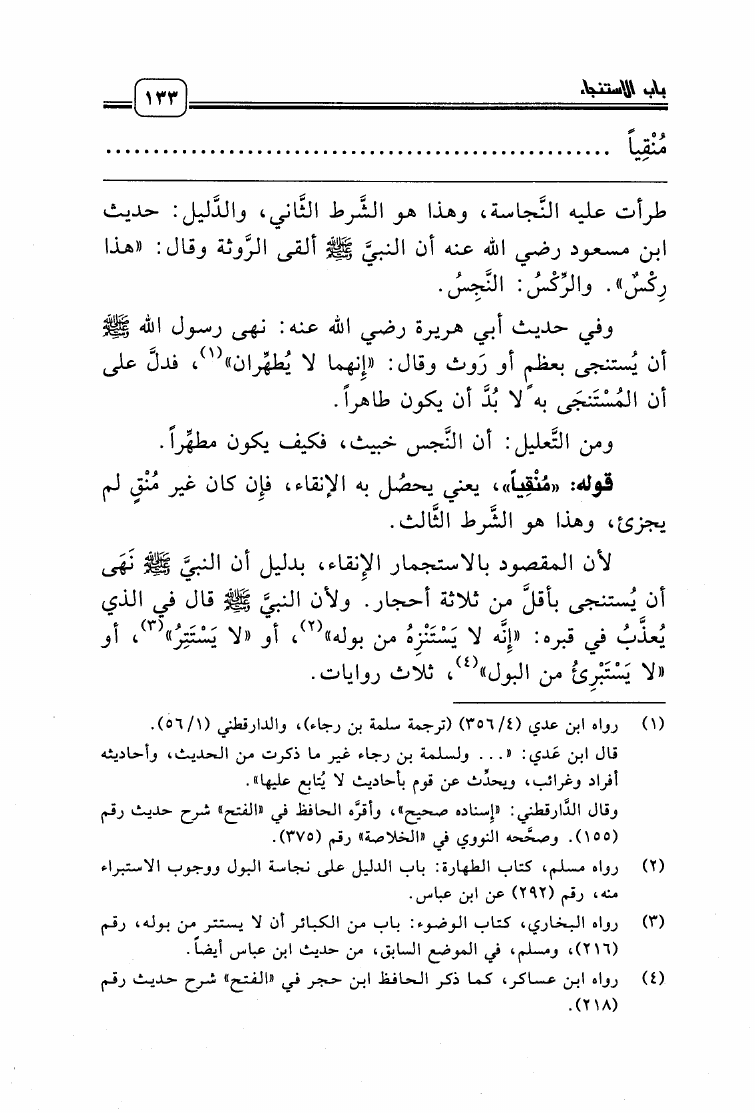 باب الاستنجاء
١٣٣
مُنْقِياً ......................................................
طرأت عليه النَّجاسة، وهذا هو الشَّرط الثَّاني، والدَّليل: حديث
ابن مسعود رضي الله عنه أن النبيَّ ﷺ ألقى الرَّوثة وقال: «هذا
رِكْسٌ». والرِّكْسُ: النَّجِسُ.
وفي حديث أبي هريرة رضي الله عنه: نهى رسول الله ﷺ
أن يُستنجى بعظمٍ أو رَوث وقال: «إنهما لا يُطهِّران»(١)، فدلَّ على
أن المُسْتَنجَى به لا بُدَّ أن يكون طاهراً.
ومن التَّعليل: أن النَّجس خبيث، فكيف يكون مطهِّراً.
قوله: «مُنْقِياً»، يعني يحصُل به الإنقاء، فإن كان غير مُنْقٍ لم
يجزئ، وهذا هو الشَّرط الثَّالث.
لأن المقصود بالاستجمار الإنقاء، بدليل أن النبيَّ ﷺ نَهَى
أن يُستنجى بأقلَّ من ثلاثة أحجار. ولأن النبيَّ ﷺ قال في الذي
يُعذَّبُ في قبره: «إنَّه لا يَسْتَنْزِهُ من بوله»(٢)، أو «لا يَسْتَتِرُ»(٣)، أو
«لا يَسْتَبْرِئُ من البول»(٤)، ثلاث روايات.
(١) رواه ابن عدي (٣٥٦/٤) (ترجمة سلمة بن رجاء)، والدارقطني (٥٦/١).
قال ابن عَدي: «... ولسلمة بن رجاء غير ما ذكرت من الحديث، وأحاديثه
أفراد وغرائب، ويحدِّث عن قوم بأحاديث لا يُتابع عليها».
وقال الدَّارقطني: «إسناده صحيح»، وأقرَّه الحافظ في «الفتح» شرح حديث رقم
(١٥٥). وصحَّحه النووي في «الخلاصة» رقم (٣٧٥).
(٢) رواه مسلم، كتاب الطهارة: باب الدليل على نجاسة البول ووجوب الاستبراء
منه، رقم (٢٩٢) عن ابن عباس.
(٣) رواه البخاري، كتاب الوضوء: باب من الكبائر أن لا يستتر من بوله، رقم
(٢١٦)، ومسلم، في الموضع السابق، من حديث ابن عباس أيضاً.
(٤) رواه ابن عساكر، كما ذكر الحافظ ابن حجر في «الفتح» شرح حديث رقم
(٢١٨).